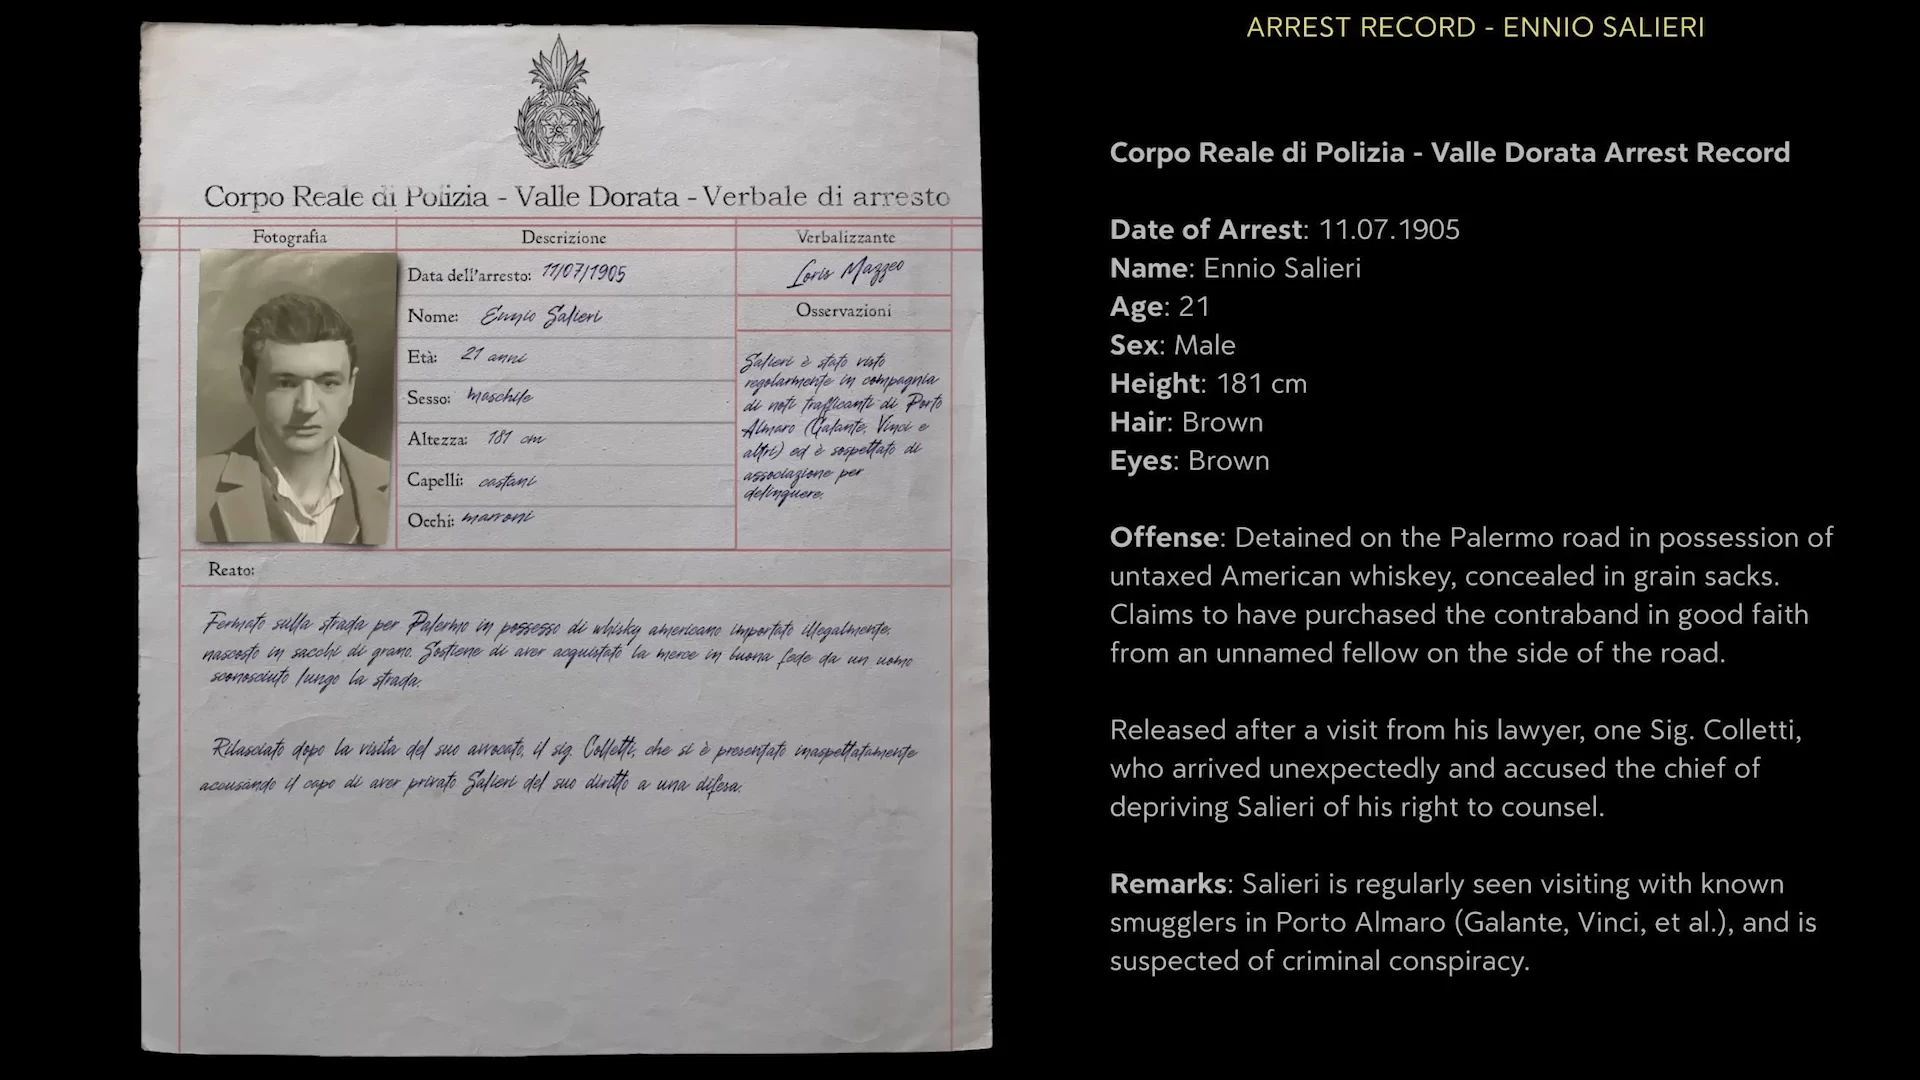 ARREST RECORD - ENNIO SALIERI
Corpo Reale di Polizia - Valle Dorata - Verbale di arresto
Fotografia
Descrizione
Verbalizzante
Data dell'arresto: 11/07/1905
Loris Mazzeo
Nome: Ennio Salieri
Osservazioni
Età: 21 anni
Sesso: maschile
Altezza: 181 cm
Capelli: castani
Occhi: marroni
Salieri è stato visto
regolarmente in compagnia
di noti trafficanti di Porto
Almaro (Galante, Vinci e
altri) ed è sospettato di
associazione per
delinquere.
Reato:
Fermato sulla strada per Palermo in possesso di whisky americano importato illegalmente,
nascosto in sacchi di grano. Sostiene di aver acquistato la merce in buona fede da un uomo
sconosciuto lungo la strada.
Rilasciato dopo la visita del suo avvocato, il sig. Colletti, che si è presentato inaspettatamente
accusando il capo di aver privato Salieri del suo diritto a una difesa.
Corpo Reale di Polizia - Valle Dorata Arrest Record
Date of Arrest: 11.07.1905
Name: Ennio Salieri
Age: 21
Sex: Male
Height: 181 cm
Hair: Brown
Eyes: Brown
Offense: Detained on the Palermo road in possession of
untaxed American whiskey, concealed in grain sacks.
Claims to have purchased the contraband in good faith
from an unnamed fellow on the side of the road.
Released after a visit from his lawyer, one Sig. Colletti,
who arrived unexpectedly and accused the chief of
depriving Salieri of his right to counsel.
Remarks: Salieri is regularly seen visiting with known
smugglers in Porto Almaro (Galante, Vinci, et al.), and is
suspected of criminal conspiracy.